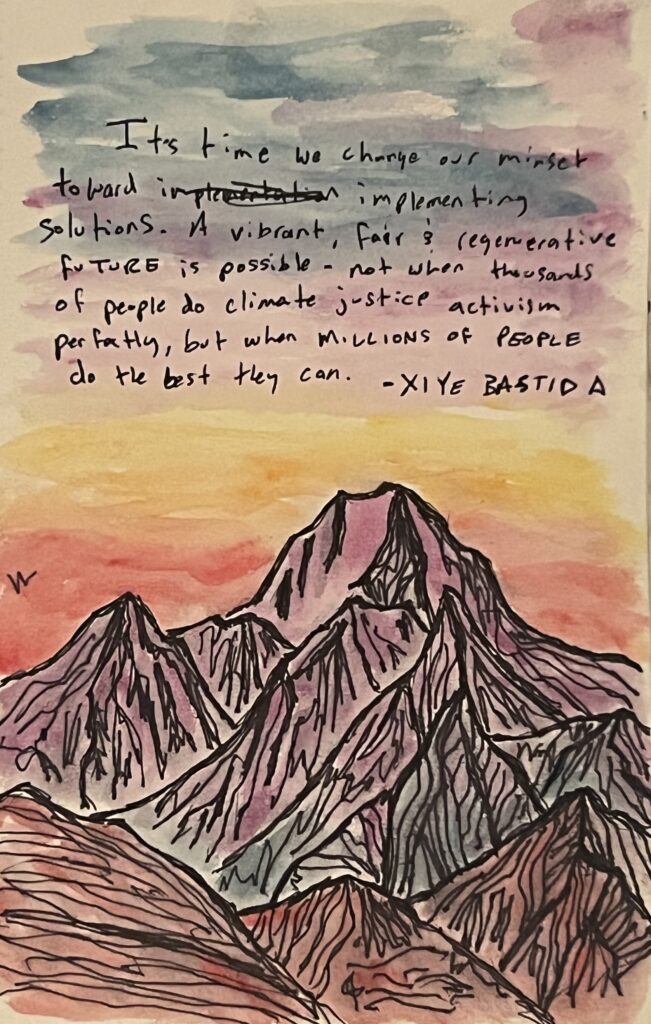 It's time we change our minset
toward implementation implementing
solutions. A vibrant, fair & regenerative
fuTURE is possible - not when thousands
of people do climate justice activism
perfectly, but when MILLIONS OF PEOPLE
do the best they can. - XIYE BASTIDA